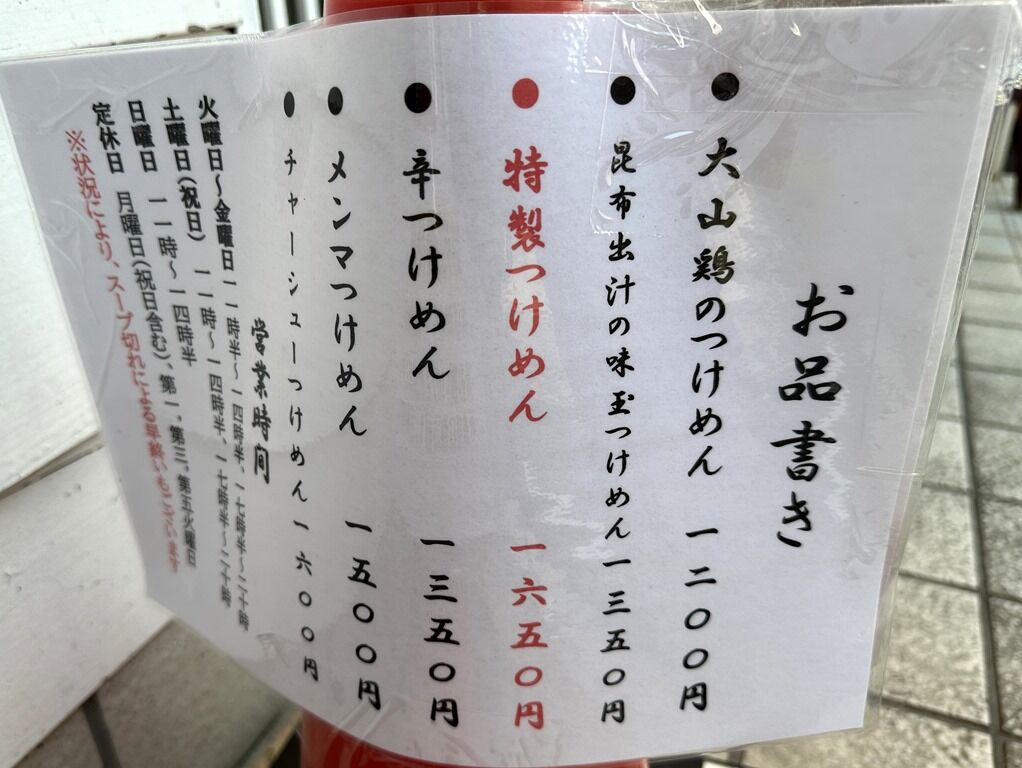 お品書き
● 大山鶏のつけめん 一二〇〇円
● 昆布出汁の味玉つけめん 一三五〇円
● 特製つけめん 一六五〇円
● 辛つけめん 一三五〇円
● メンマつけめん 一五〇〇円
● チャーシューつけめん 一六〇〇円
営業時間
火曜日～金曜日 一一時半～一四時半、一七時半～二十時
土曜日(祝日) 一一時～一四時半、一七時半～二十時
日曜日 一一時～一四時半
定休日 月曜日(祝日含む)、第一、第三、第五火曜日
※状況により、スープ切れによる早終いもございます